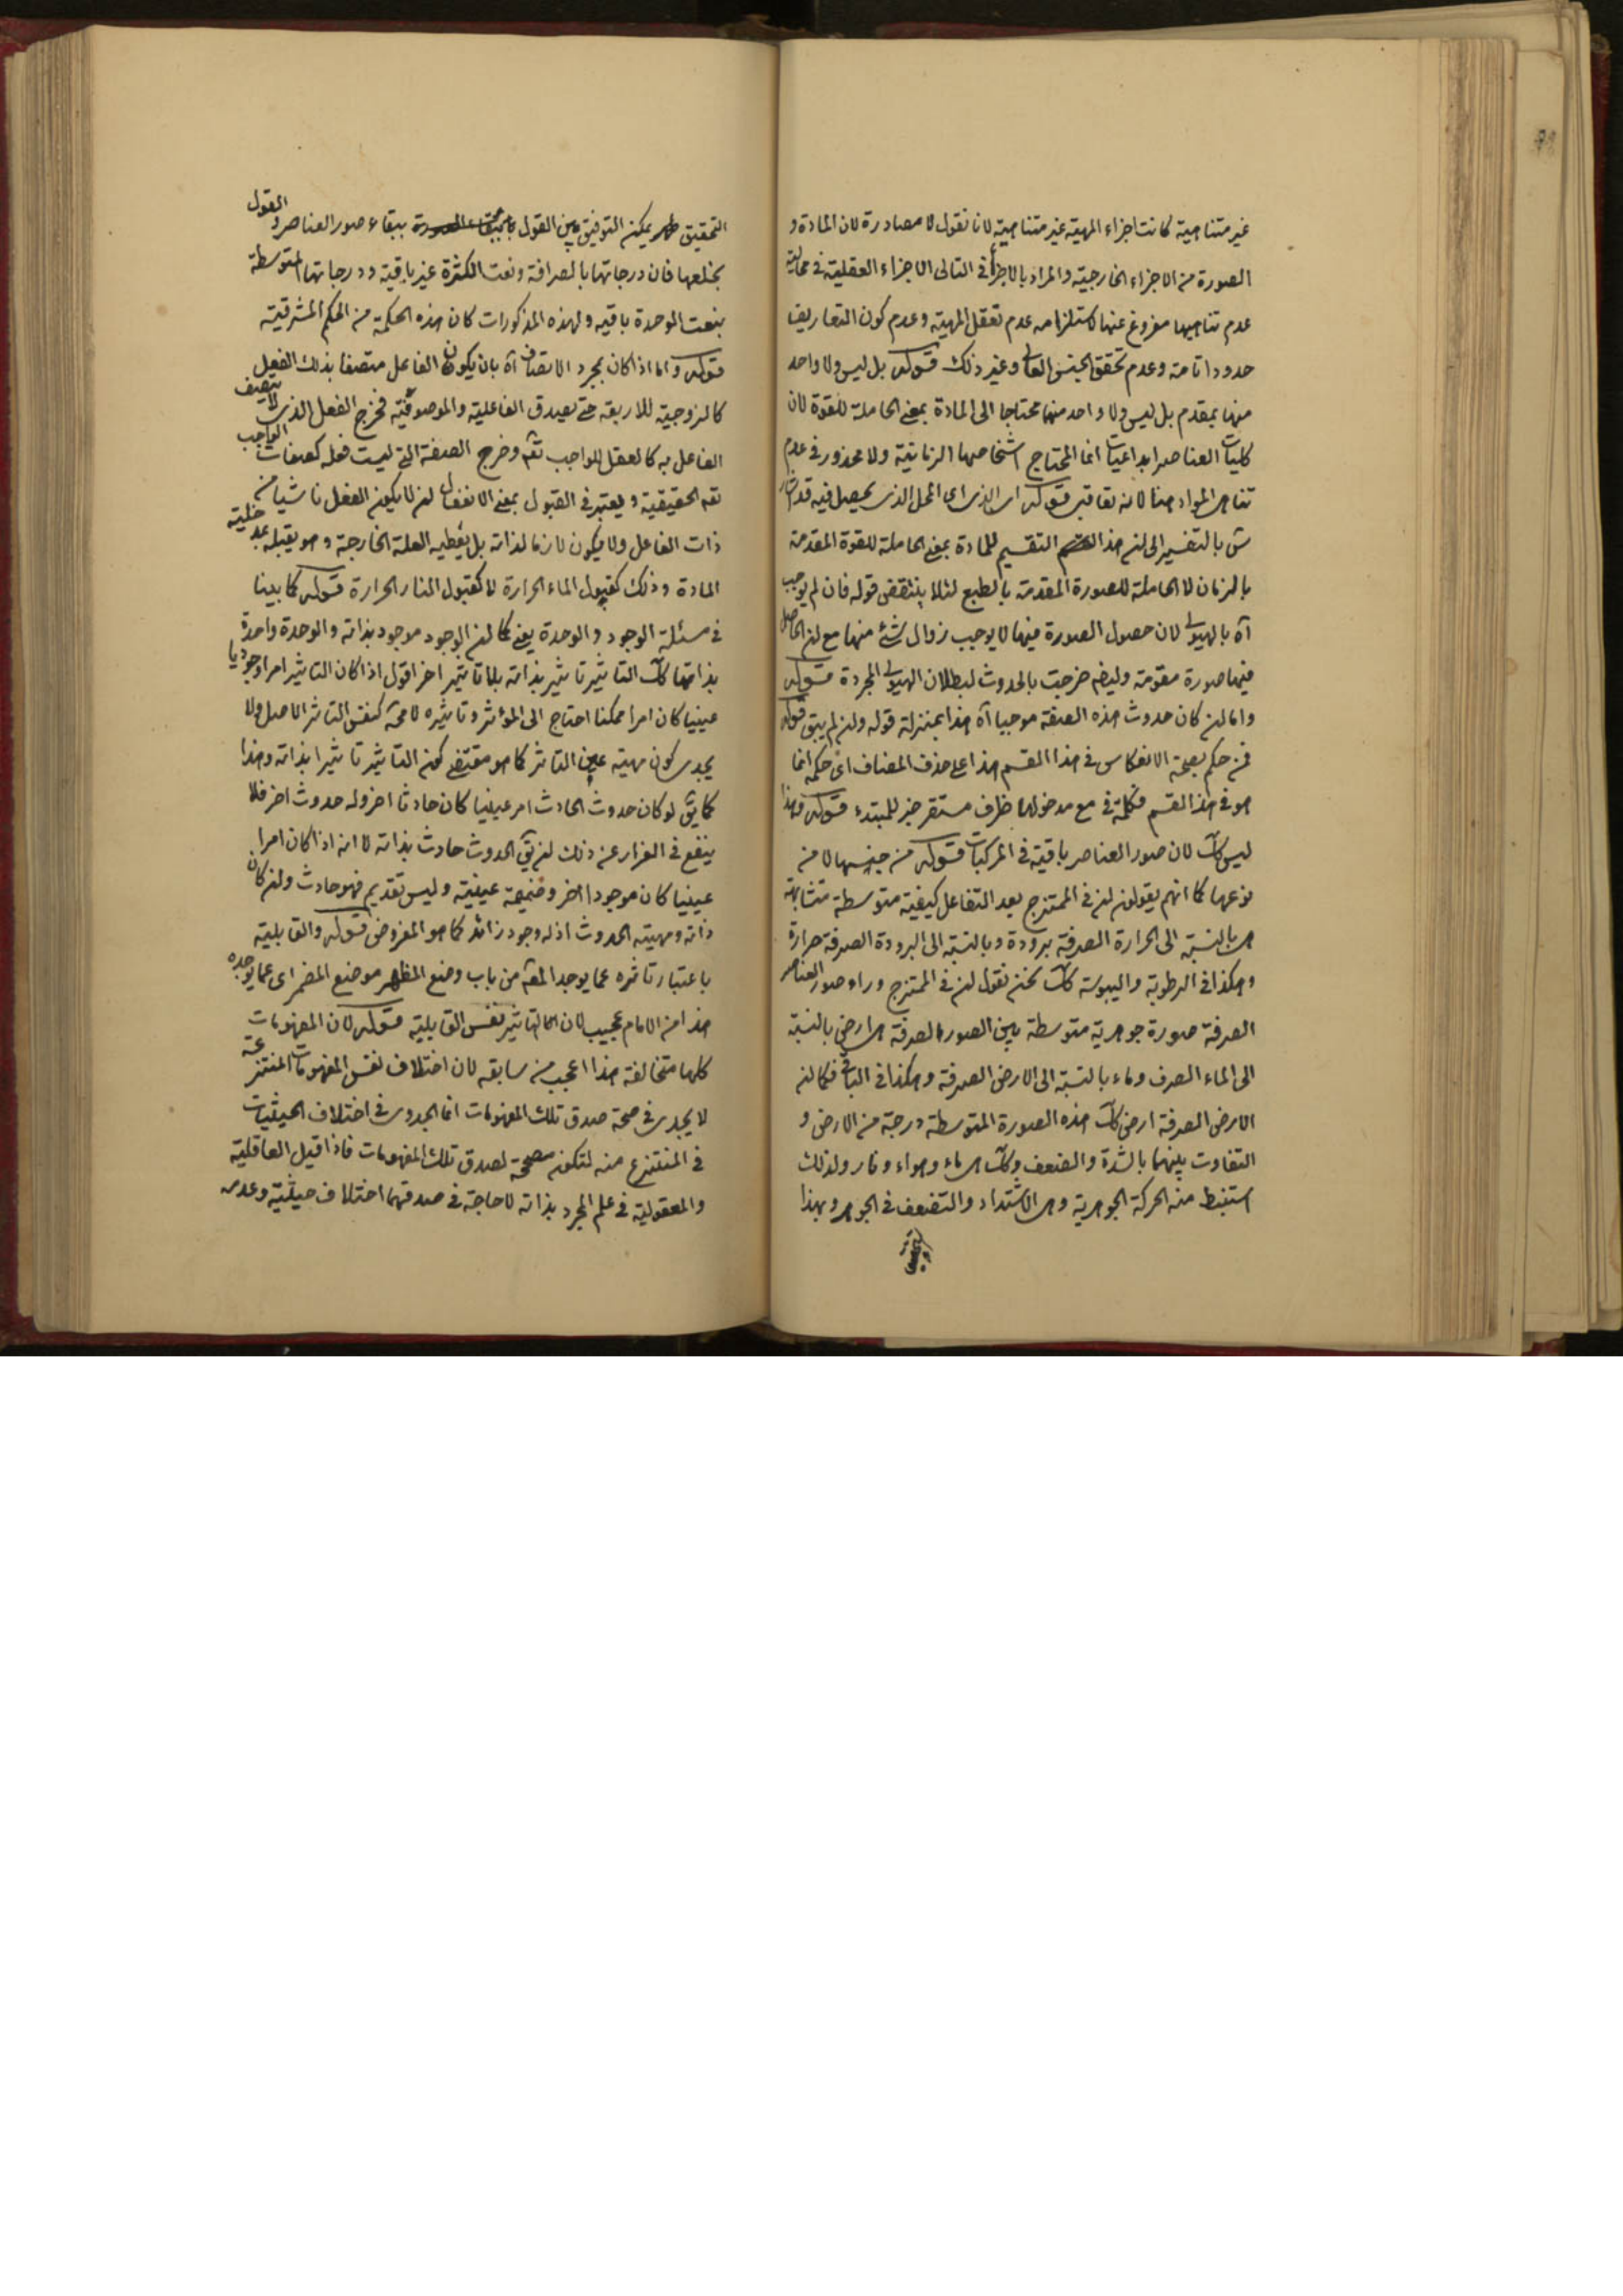 غير متناهية كانت اجزاء المهية غير متناهية لانا نقول لا مصادرة لان المادة و
الصورة من الاجزاء الخارجية والمراد بالاجزاء في التالى الاجزاء العقلية في
عدم تناهيها مفروغ عنها لاستلزامه عدم تعقل المهية وعدم كون التعاريف
حدودا تامة وعدم تحقق الجنس العالى وغير ذلك قوله بل ليس ولا واحد
منها بمقدم بل ليس ولا واحد منها محتاجا الى المادة بمعنى الحاملة للقوة لان
كليات العناصر ابداعيات انما المحتاج اشخاصها الزمانية ولا محذور في عدم
تناهى المواد هنا لانه تعاقبى قوله اى الذى اى المحل الذى يحصل فيه قد اشار
ش بالتفسير الى ان هذا التقسيم للمادة بمعنى الحاملة للقوة المقدمة
بالزمان لا الحاملة للصورة المقدمة بالطبع لئلا ينتقض قوله فان لم يوجب
آه بالهيولى لان حصول الصورة فيها لا يوجب زوال شئ منها مع ان الحاصل
فيها صورة مقومة وايضا خرجت بالحدوث لبطلان الهيولى المجردة قوله
واما ان كان حدوث هذه الصفة موجبا آه هذا بمنزلة قوله وان لم يبق قوله
فى حكم بصحة الانعكاس في هذا القسم هذا على حذف المضاف اى حكمه انما
هو في هذا القسم فكلمة في مع مدخولها ظرف مستقر خبر للمبتدء قوله وهذا
ليس كك لان صور العناصر باقية في المركبات قوله من جنسها لا من
نوعها كما انهم يقولون ان في الممتزج بعد التفاعل كيفية متوسطة متشابهة
هى بالنسبة الى الحرارة الصرفة برودة وبالنسبة الى البرودة الصرفة حرارة
وهكذا في الرطوبة واليبوسة كك نحن نقول ان في الممتزج وراء صور العناصر
الصرفة صورة جوهرية متوسطة بين الصور الصرفة هى ارض بالنسبة
الى الماء الصرف وماء بالنسبة الى الارض الصرفة وهكذا في الباقى فكما ان
الارض الصرفة ارض كك هذه الصورة المتوسطة درجة من الارض و
التفاوت بينهما بالشدة والضعف وكك هى ماء وهواء ونار ولذلك
استنبط منه الحركة الجوهرية وهى الاشتداد والتضعف في الجوهر وبهذا
التحقيق يمكن التوفيق بين القول ببقاء صور العناصر والقول
بخلعها فان درجاتها بالصرافة ونعت الكثرة غير باقية ودرجاتها المتوسطة
بنعت الوحدة باقية ولهذه المذكورات كان هذه الحكمة من الحكم المشرقية
قوله واما اذا كان بمجرد الاتصاف آه بان يكون الفاعل متصفا بذلك الفعل
كالزوجية للاربعة حتى يصدق الفاعلية والموصوفية فخرج الفعل الذى لا يتصف
الفاعل به كالعقل للواجب تعه وخرج الصفة التى ليست فعله كصفات الواجب
تعه الحقيقية ويعتبر في القبول بمعنى الانفعال ان لا يكون الفعل ناشيا من
ذات الفاعل ولا يكون لازما لذاته بل يعطيه العلة الخارجة وهو يقبله بمدخلية
المادة وذلك كقبول الماء الحرارة لا كقبول النار الحرارة قوله كما بينا
في مسئلة الوجود والوحدة يعنى كما ان الوجود موجود بذاته والوحدة واحدة
بذاتها كك التاثير تاثير بذاته بلا تاثير اخر اقول اذا كان التاثير امرا وجوديا
عينيا كان امرا ممكنا احتاج الى المؤثر وتاثيره لا محة كنفس التاثر الاصل ولا
يجدى كون مهية عين التاثر كما هو مقتضى كون التاثير تاثيرا بذاته وهذا
كما يق لو كان حدوث الحادث امر عينيا كان حادثا اخر وله حدوث اخر فلا
ينفع في الفرار عن ذلك ان يق الحدوث حادث بذاته لانه اذا كان امرا
عينيا كان موجودا اخر وضميمة عينية وليس بقديم فهو حادث وان كان
ذاته ومهيته الحدوث اذ له وجود زائد كما هو المفروض قوله والقابلية
باعتبار تاثره عما يوجد المقه من باب وضع المظهر موضع المضمر اى عما يوجده
هذا من الامام عجيب لان التاثير نفس القابلية قوله لان المفهومات
كلها متخالفة هذا اعجب من سابقه لان اختلاف نفس المفهومات المنتزعة
لا يجدى في صحة صدق تلك المفهومات انما الجدوى في اختلاف الحيثيات
في المنتزع منه لتكون مصححة لصدق تلك المفهومات فاذا قيل العاقلية
والمعقولية في علم المجرد بذاته لا حاجة في صدقهما اختلاف حيثية وعدمه